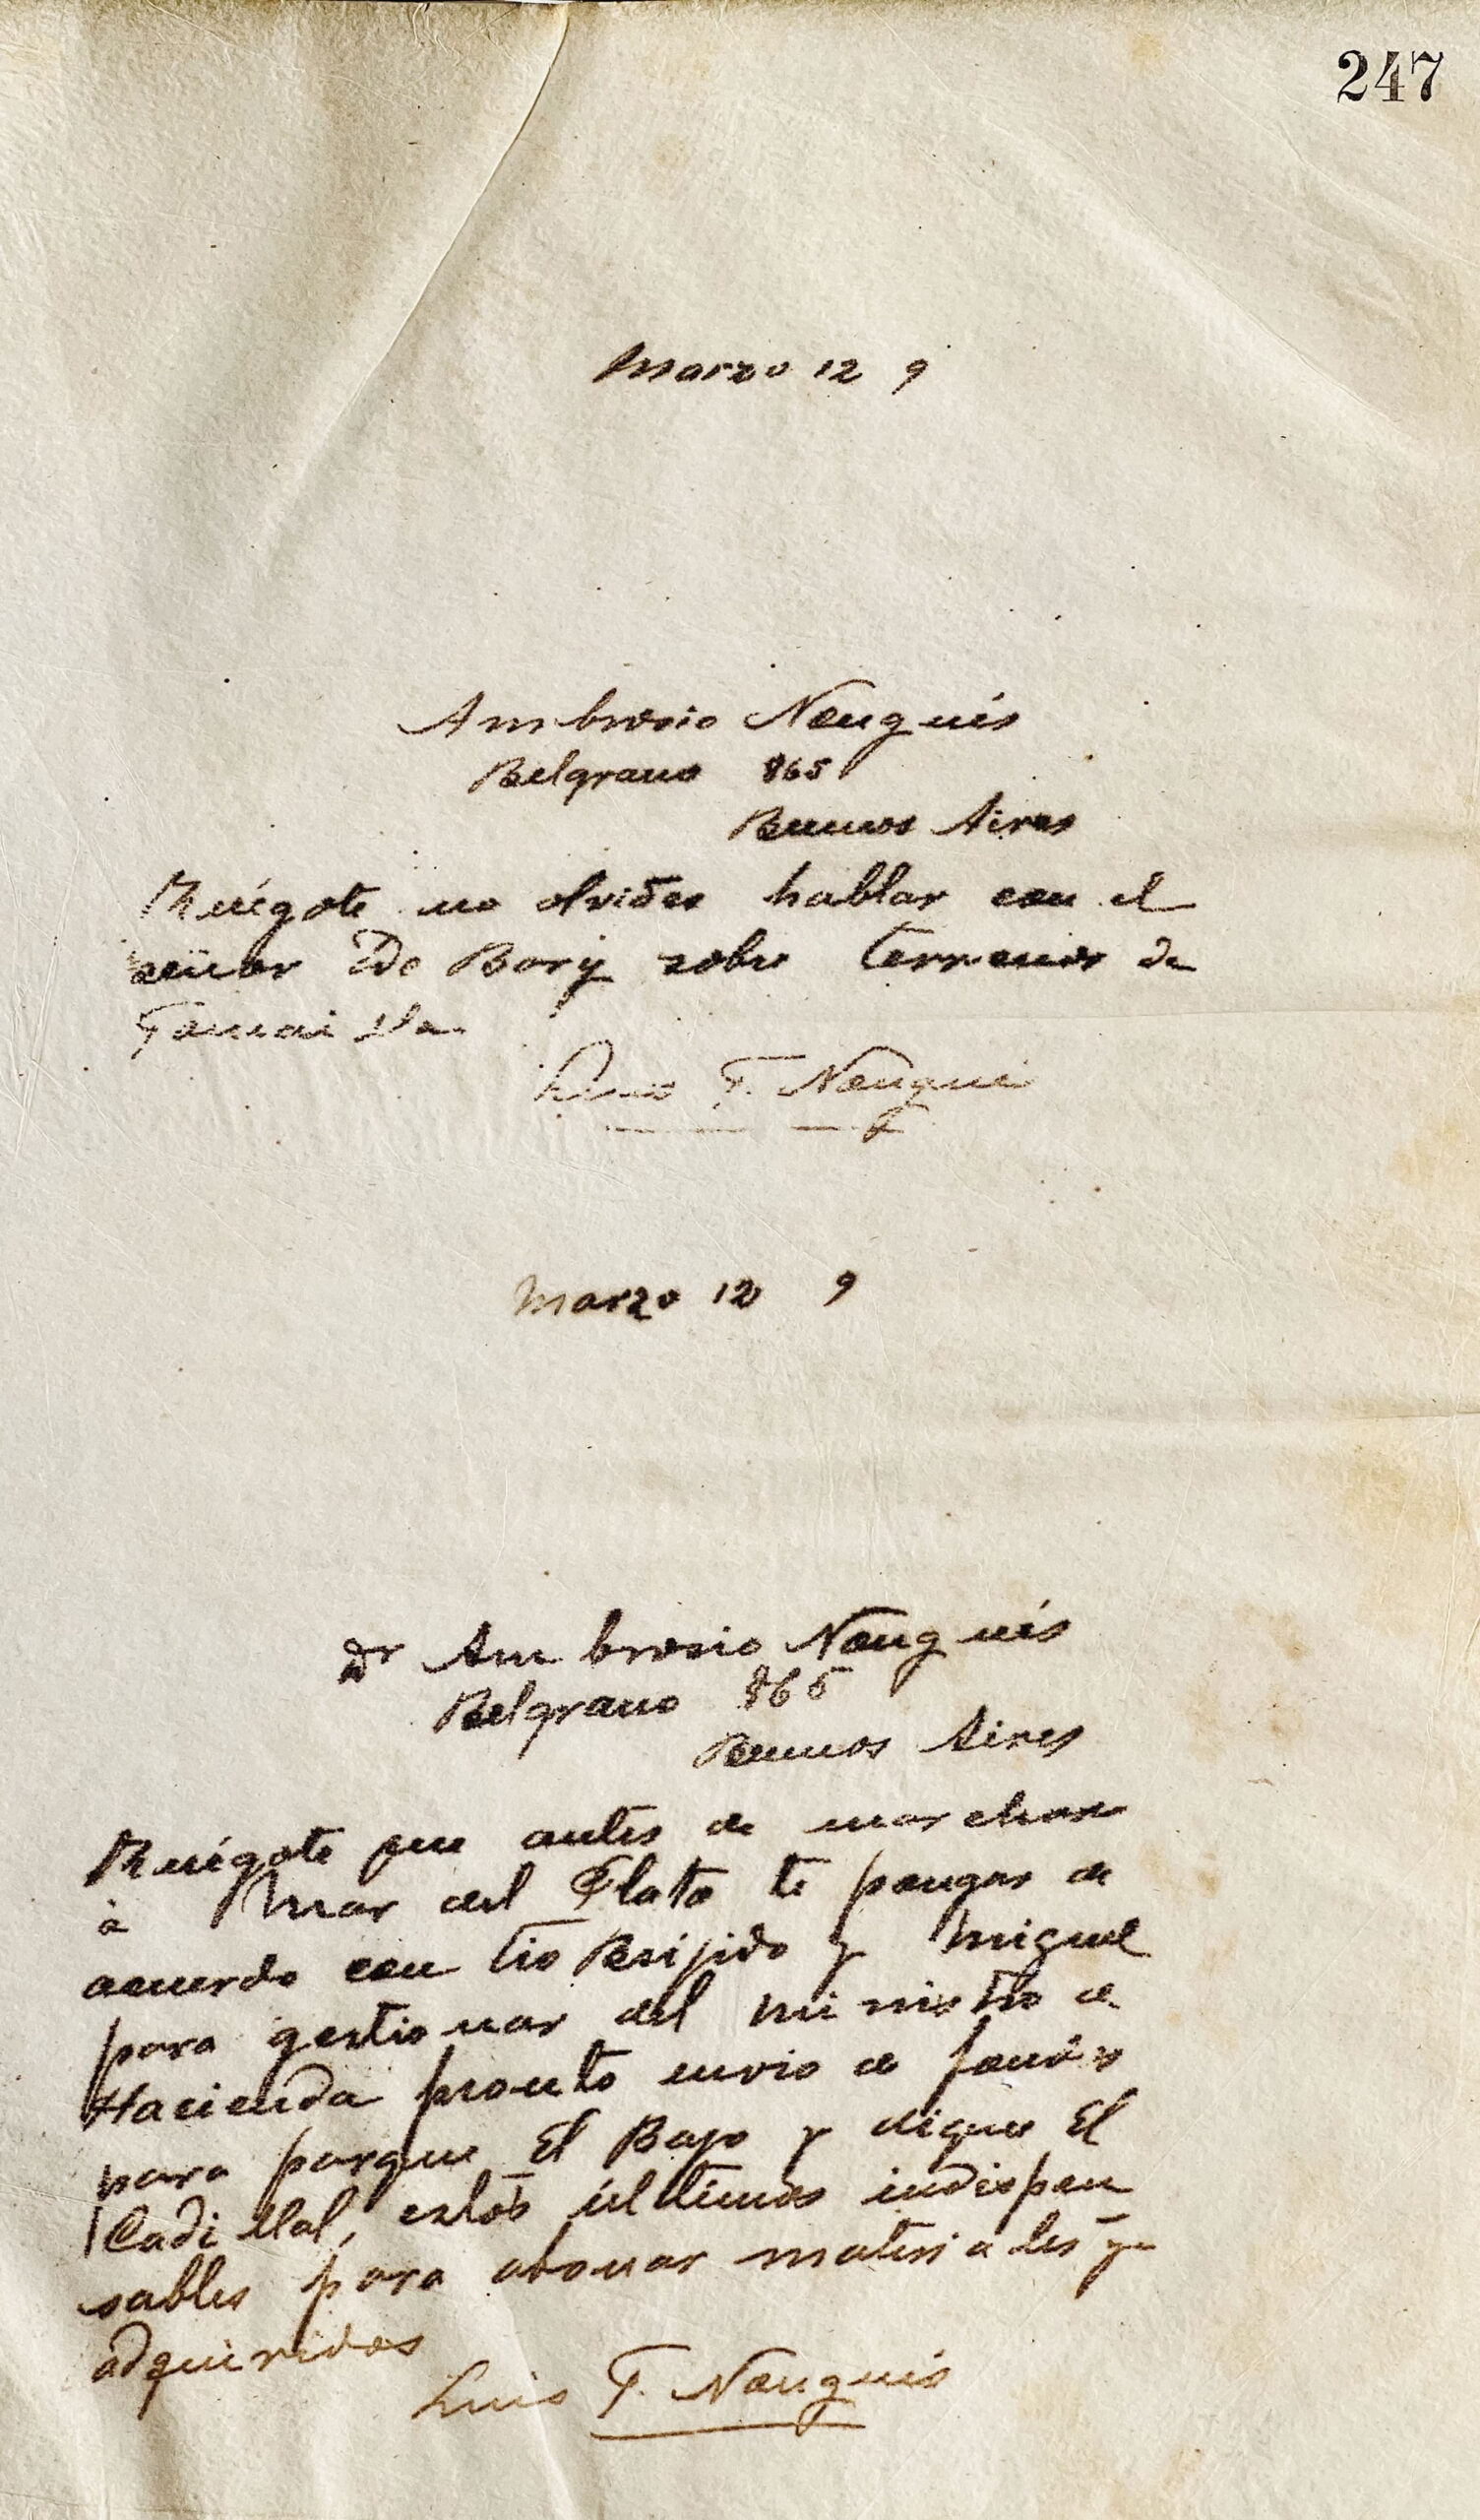 247
Marzo 12 9
Ambrosio Nougués
Belgrano 865
Buenos Aires
Ruégote no olvides hablar con el
señor De Bary sobre terrenos de
Luis F. Nougués
Marzo 12 9
Dr Ambrosio Nougués
Belgrano 865
Buenos Aires
Ruégote que antes de marchar
á Mar del Plata te pongas de
acuerdo con tio Brijido y Miguel
para gestionar del ministro de
Hacienda pronto envio de fondos
para parque El Bajo y dique El
Cadillal, estos últimos indispen
sables para abonar materiales ya
adquiridos
Luis F. Nougués